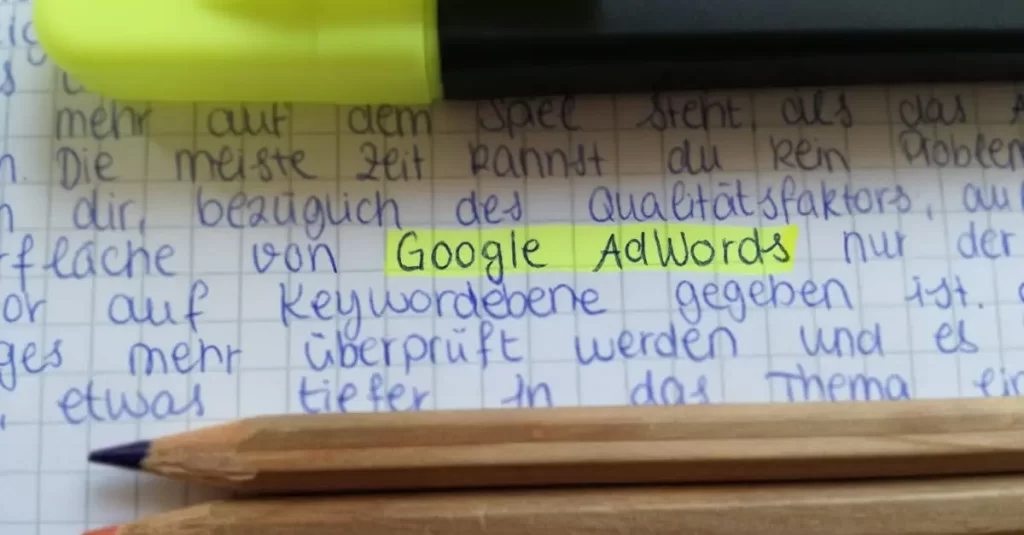 mehr auf dem Spiel steht, als das
n. Die meiste Zeit kannst du kein Problem
n dir, bezüglich des Qualitätsfaktors, auf
rfläche von Google AdWords nur der
or auf Keywordebene gegeben ist.
ges mehr überprüft werden und es
etwas tiefer in das Thema ein